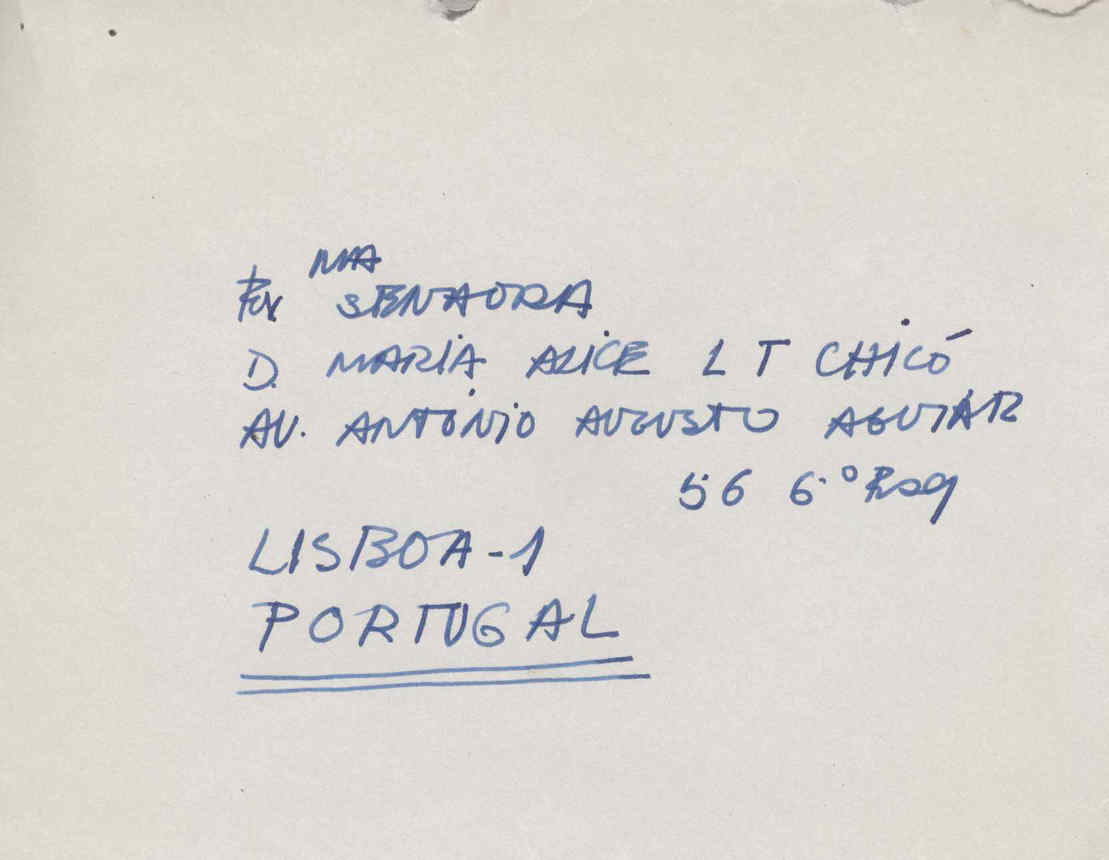 MA
SENHORA
D. MARIA ALICE L T CHICÓ
AV. ANTÓNIO AUGUSTO AGUIAR
56 6.º
LISBOA-1
PORTUGAL